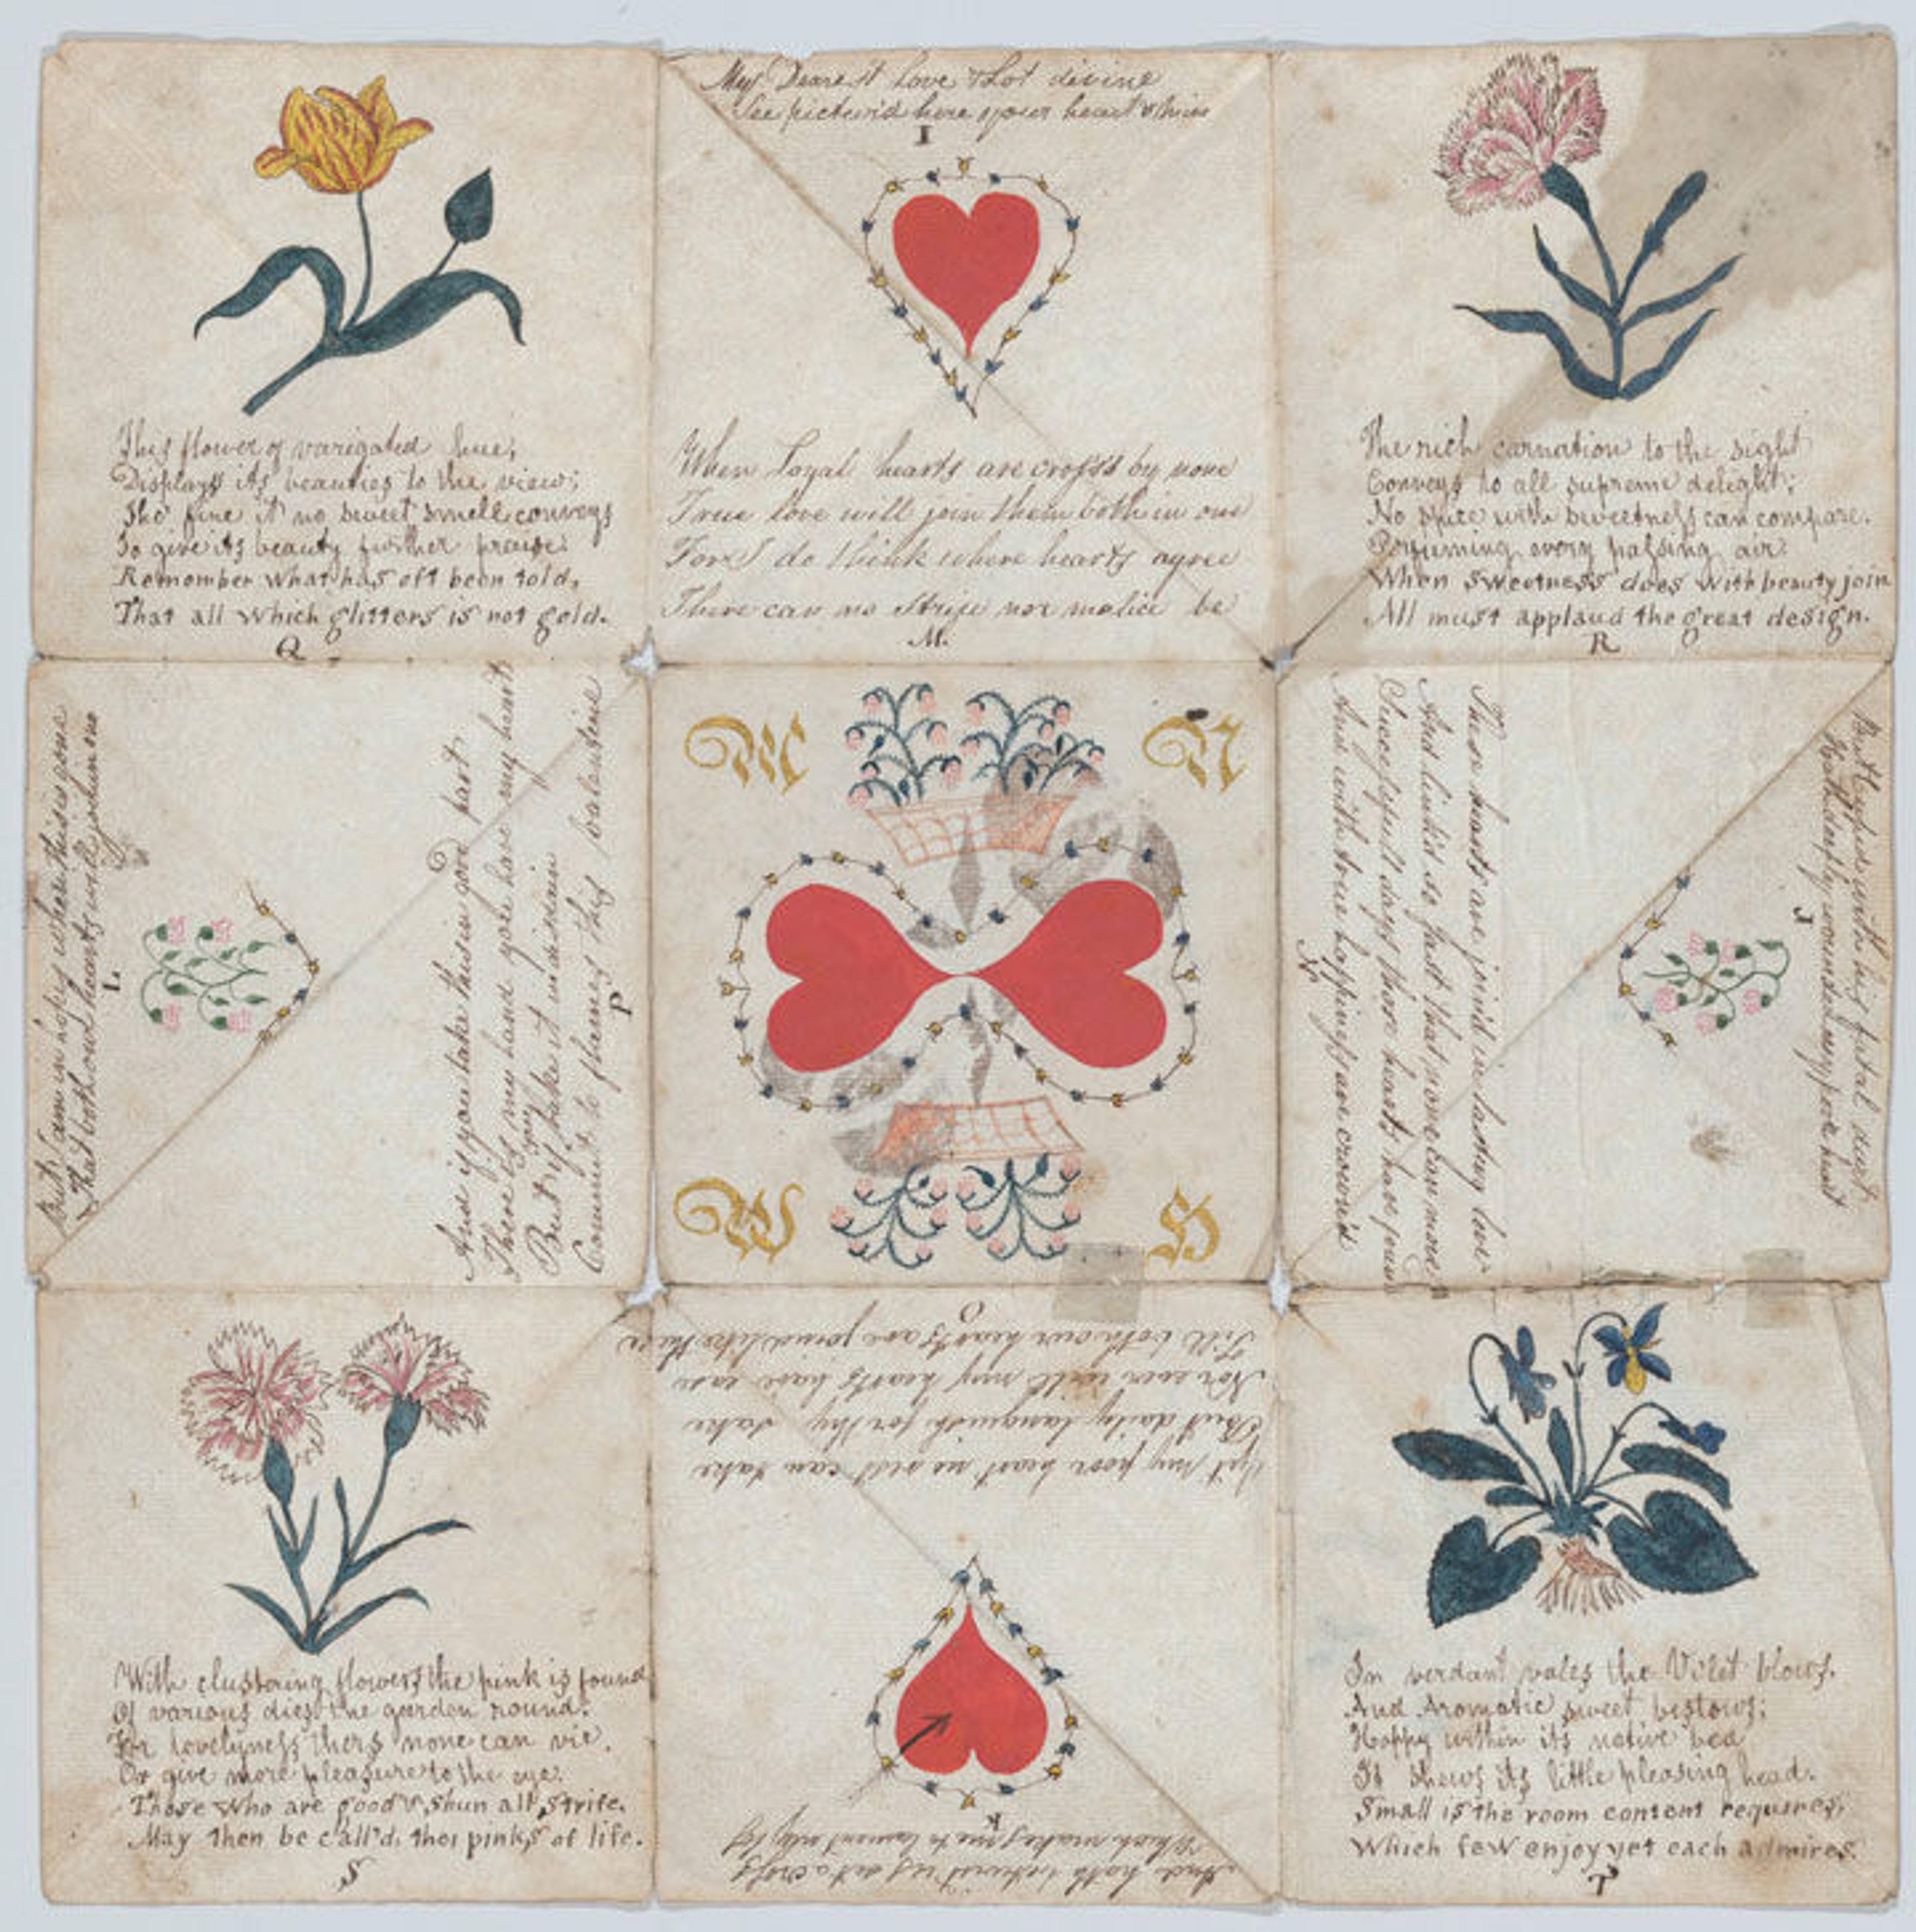 This flower of varigated hue,
Displays its beauties to the view;
Tho' fine it no sweet smell conveys
To give its beauty further praise.
Remember what has oft been told,
That all which glitters is not gold.
Q
My Dearest Love & Lot divine
See pictur'd here your heart & mine
I
When Loyal hearts are cross'd by none
True love will join them both in one
For I do think where hearts agree
There can no strife nor malice be
M.
The rich carnation to the sight
Conveys to all supreme delight;
No spice with sweetness can compare.
Perfuming every passing air:
When sweetness does with beauty join
All must applaud the great design.
R
But I am in hopes when this is gone
That both our hearts will join in one
L
And if you take this in good part
There is my hand you have my heart
But if you take it in disdain
Commit to flames this valentine
P
M
N
W
H
These hearts are join'd in lasting love
And link'd so fast that none can move
Successfull days these hearts have found
And with true happiness are crown'd
N
But Cupid with his fatal dart
Hath deeply wounded my poor heart
J
With clustering flowers the pink is found
Of various dies the garden round.
For lovelyness thers none can vie.
Or give more pleasure to the eye.
Those who are good & shun all strife.
May then be call'd, the pinks of life.
S
Yet my poor heart no rest can take
But daily languish for thy sake
Nor ever will my hearts have ease
Till both our hearts are joined like these
O
And hath us out across
Which makes me to lament my loss
K
In verdant vales the Vilet blows.
And Aromatic sweet bestows;
Happy within its native bed
It shews its little pleasing head.
Small is the room content requires,
Which few enjoy yet each admires.
T